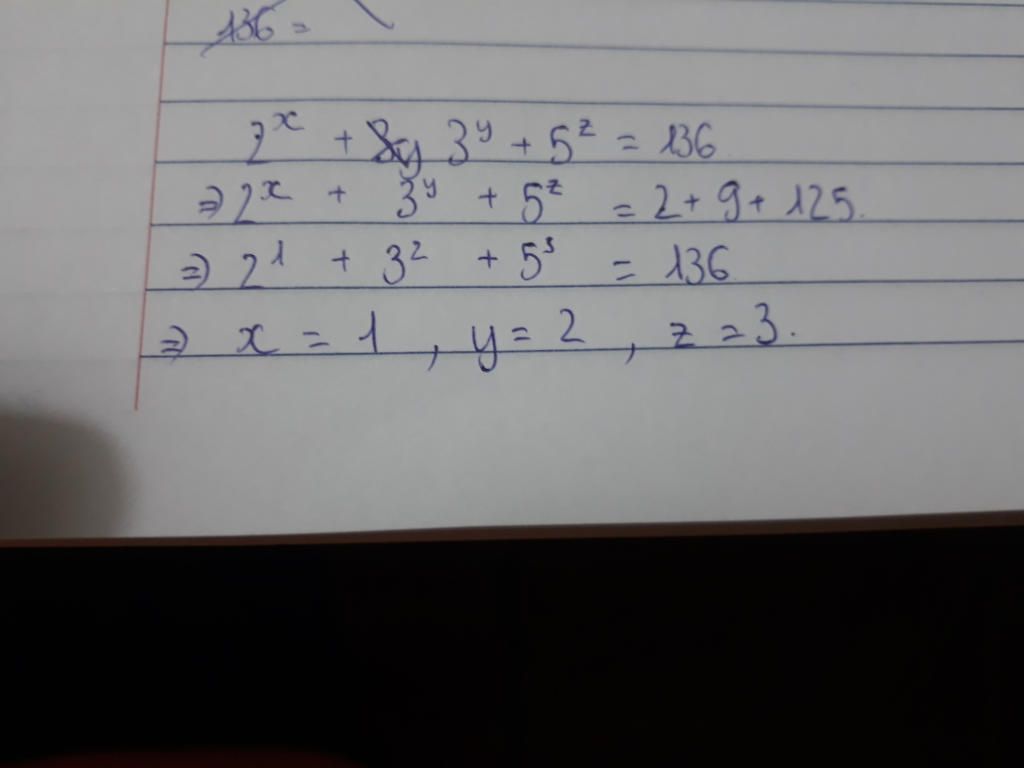 136 =
2^x + 3^y + 5^z = 136
⇒ 2^x + 3^y + 5^z = 2 + 9 + 125.
⇒ 2^1 + 3^2 + 5^3 = 136.
⇒ x = 1 , y = 2 , z = 3.